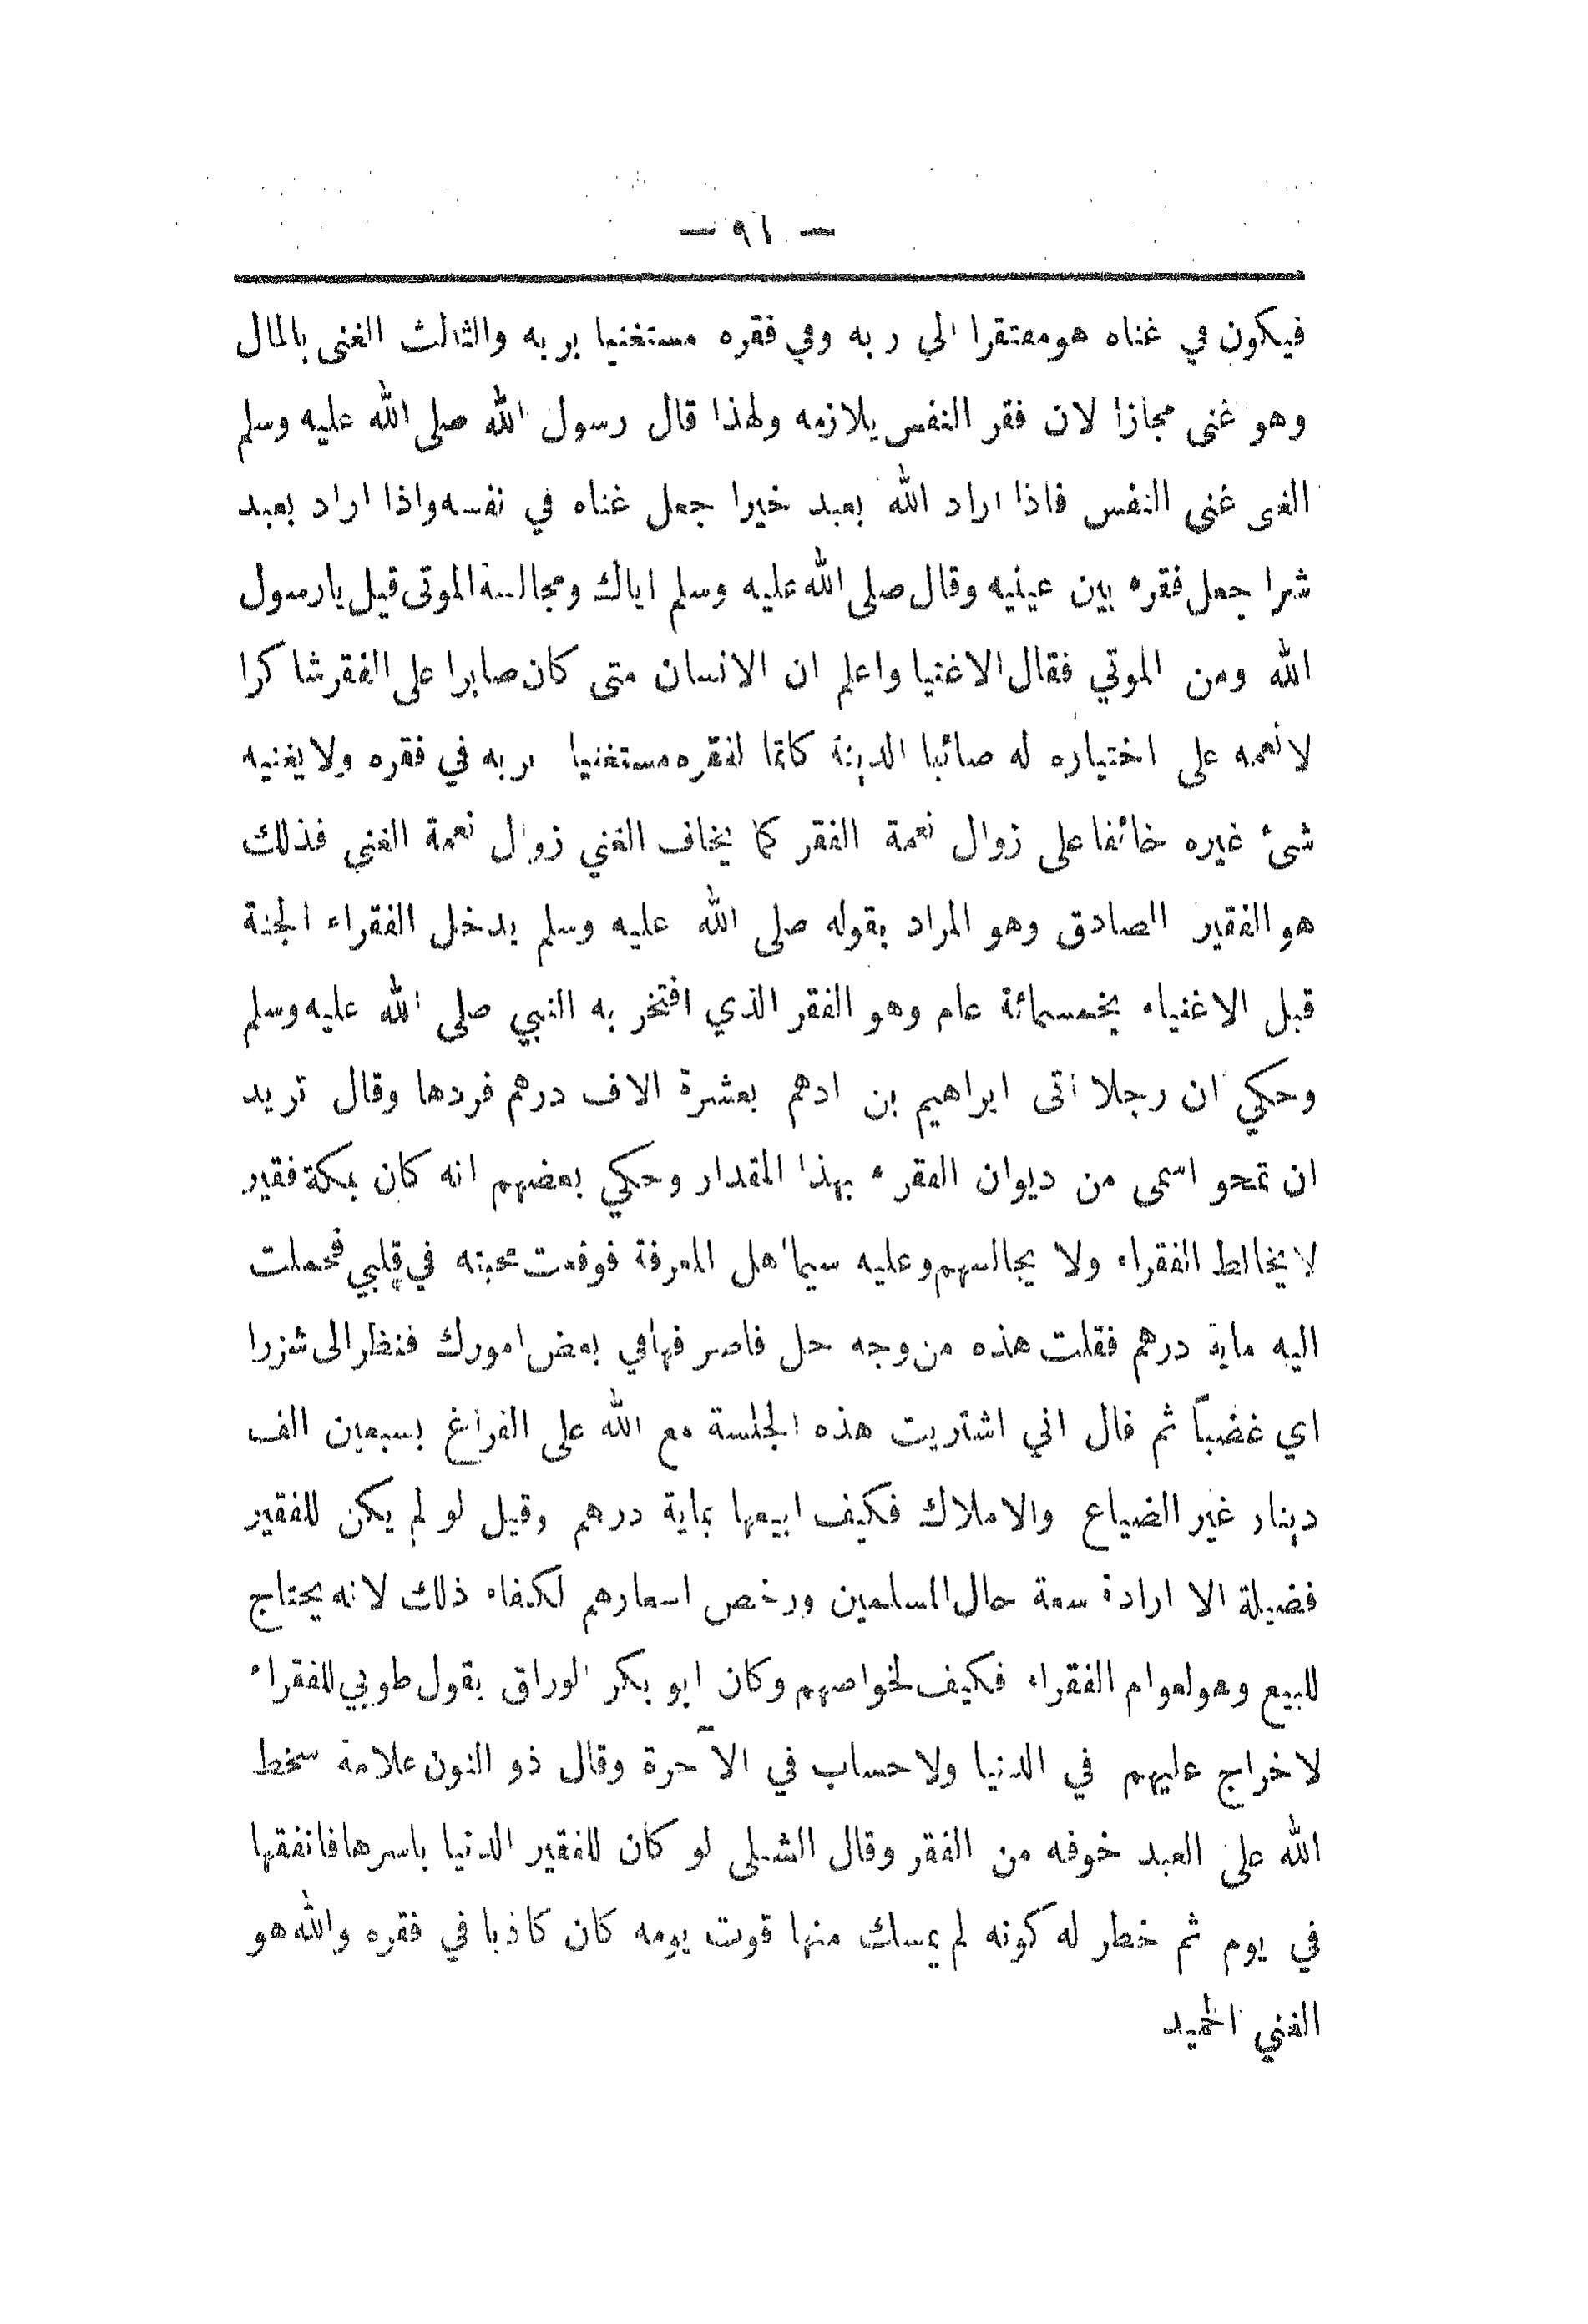 — ٩١ —
فيكون في غناه هو مفتقرا الي ربه وفي فقره مستغنيا بربه والثالث الغنى بالمال
وهو غنى مجازا لان فقر النفس يلازمه ولهذا قال رسول الله صلى الله عليه وسلم
الغنى غنى النفس فاذا اراد الله بعبد خيرا جعل غناه في نفسه واذا اراد بعبد
شرا جعل فقره بين عينيه وقال صلى الله عليه وسلم اياك ومجالسة الموتى قيل يا رسول
الله ومن الموتي فقال الاغنيا واعلم ان الانسان متى كان صابرا على الفقر شاكرا
لانعمه على اختياره له صائبا الدينة كاتما لفقره مستغنيا بربه في فقره ولا يغنيه
شئ غيره خائفا على زوال نعمة الفقر كما يخاف الغني زوال نعمة الغني فذلك
هو الفقير الصادق وهو المراد بقوله صلى الله عليه وسلم يدخل الفقراء الجنة
قبل الاغنياء بخمسمائة عام وهو الفقر الذي افتخر به النبي صلى الله عليه وسلم
وحكي ان رجلا أتى ابراهيم بن ادهم بعشرة الاف درهم فردها وقال تريد
ان تمحو اسمى من ديوان الفقراء بهذا المقدار وحكي بعضهم انه كان بمكة فقير
لا يخالط الفقراء ولا يجالسهم وعليه سيما أهل المعرفة فوقعت محبته في قلبي فحملت
اليه ماية درهم فقلت هذه من وجه حل فاصرفها في بعض امورك فنظر الى شزرا
اي غضباً ثم قال اني اشتريت هذه الجلسة مع الله على الفراغ بسبعين الف
دينار غير الضياع والاملاك فكيف ابيعها بماية درهم وقيل لو لم يكن للفقير
فضيلة الا ارادة سعة حال المسلمين ورخص اسعارهم لكفاه ذلك لانه يحتاج
للبيع وهو لعوام الفقراء فكيف لخواصهم وكان ابو بكر الوراق يقول طوبي للفقراء
لا خراج عليهم في الدنيا ولا حساب في الآخرة وقال ذو النون علامة سخط
الله على العبد خوفه من الفقر وقال الشبلى لو كان للفقير الدنيا باسرها فانفقها
في يوم ثم خطر له كونه لم يمسك منها قوت يومه كان كاذبا في فقره والله هو
الغني الحميد